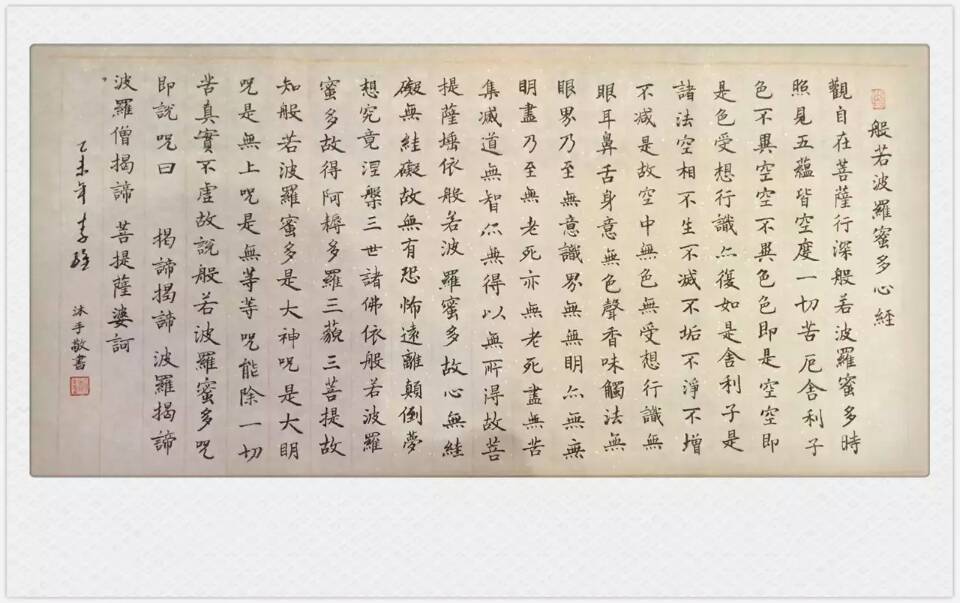 般若波羅蜜多心經
觀自在菩薩行深般若波羅蜜多時
照見五蘊皆空度一切苦厄舍利子
色不異空空不異色色即是空空即
是色受想行識亦復如是舍利子是
諸法空相不生不滅不垢不淨不增
不減是故空中無色無受想行識無
眼耳鼻舌身意無色聲香味觸法無
眼界乃至無意識界無無明亦無無
明盡乃至無老死亦無老死盡無苦
集滅道無智亦無得以無所得故菩
提薩埵依般若波羅蜜多故心無絓
礙無絓礙故無有恐怖遠離顛倒夢
想究竟涅槃三世諸佛依般若波羅
蜜多故得阿耨多羅三藐三菩提故
知般若波羅蜜多是大神咒是大明
咒是無上咒是無等等咒能除一切
苦真實不虛故說般若波羅蜜多咒
即說咒曰 揭諦揭諦 波羅揭諦
波羅僧揭諦 菩提薩婆訶
乙未年 李
沐手敬書